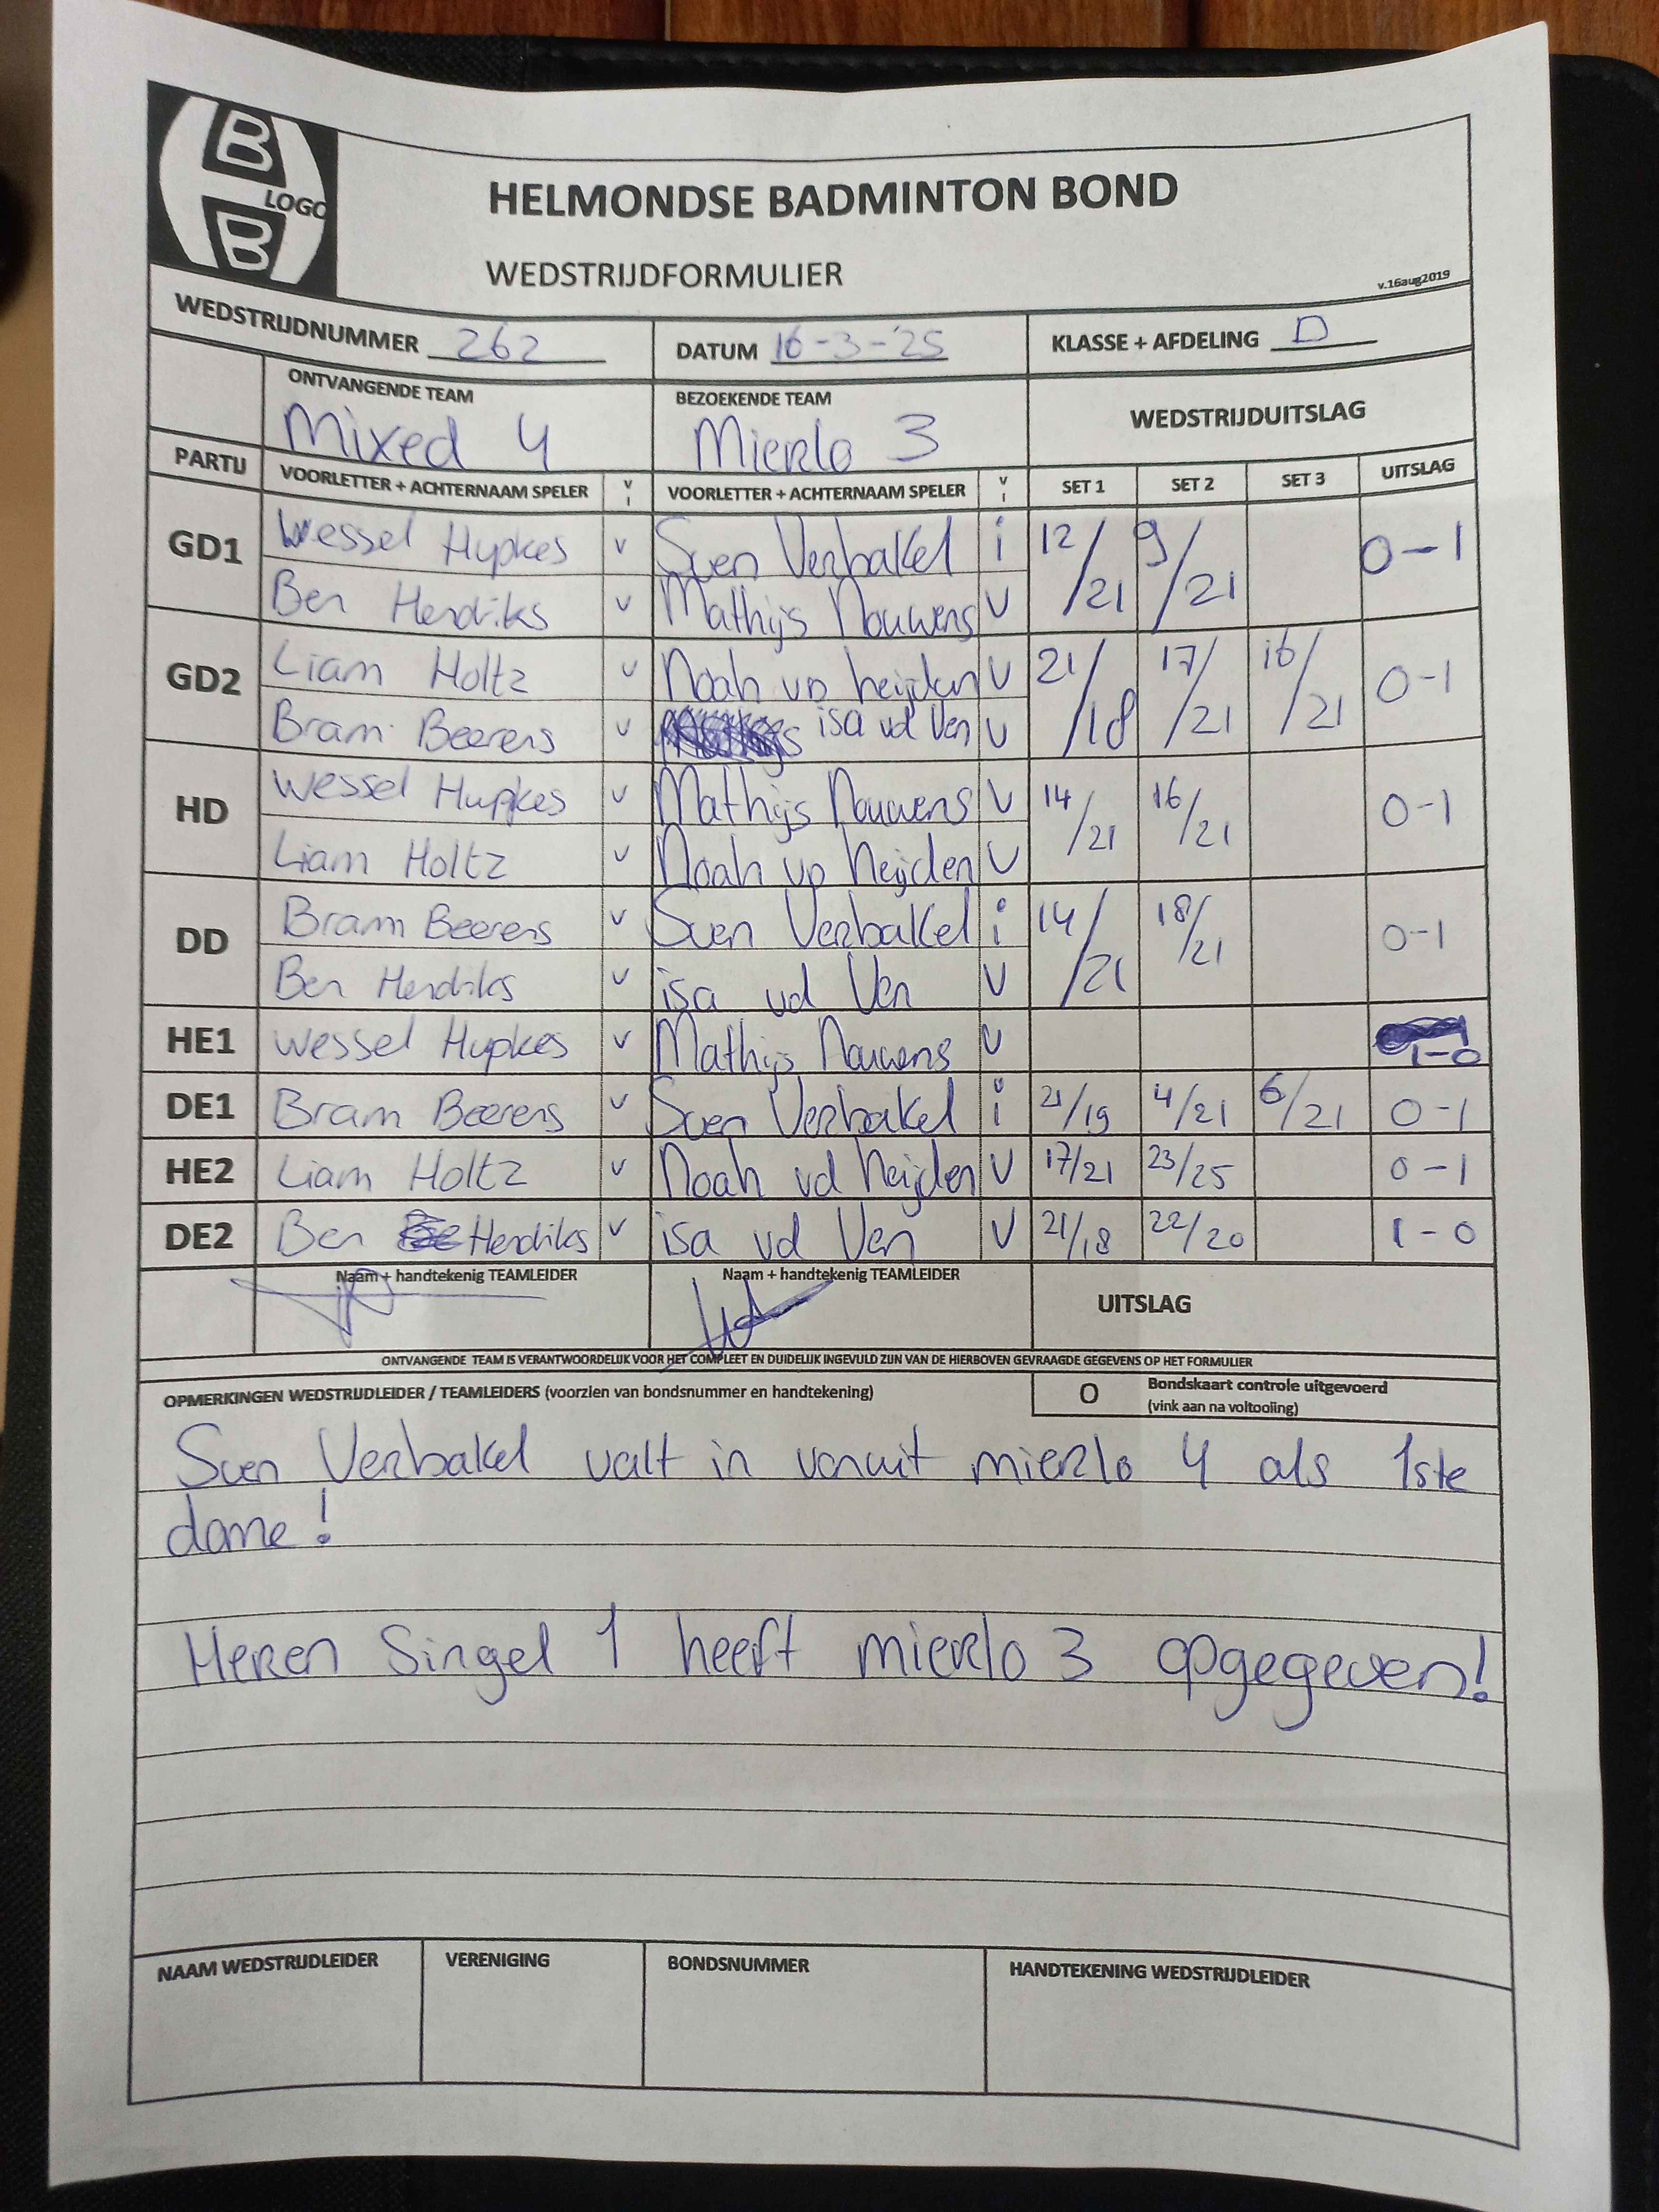 B
LOGO
B
HELMONDSE BADMINTON BOND
WEDSTRIJDFORMULIER
v.16aug2019
WEDSTRIJDNUMMER 262 DATUM 16-3-'25 KLASSE + AFDELING D
ONTVANGENDE TEAM BEZOEKENDE TEAM WEDSTRIJDUITSLAG
Mixed 4 Mierlo 3
PARTIJ VOORLETTER + ACHTERNAAM SPELER V I VOORLETTER + ACHTERNAAM SPELER V I SET 1 SET 2 SET 3 UITSLAG
GD1 Wessel Hupkes v Sven Verbakel i 12/21 9/21 0-1
Ben Hendriks v Mathijs Nouwens V
GD2 Liam Holtz v Noah vd heijden V 21/18 17/21 16/21 0-1
Bram Beerens v isa vd Ven V
HD Wessel Hupkes v Mathijs Nouwens V 14/21 16/21 0-1
Liam Holtz v Noah vd heijden V
DD Bram Beerens v Sven Verbakel i 14/21 18/21 0-1
Ben Hendriks v isa vd Ven V
HE1 Wessel Hupkes v Mathijs Nouwens V 1-0
DE1 Bram Beerens v Sven Verbakel i 21/19 4/21 6/21 0-1
HE2 Liam Holtz v Noah vd heijden V 17/21 23/25 0-1
DE2 Ben Hendriks v isa vd Ven V 21/18 22/20 1-0
Naam + handtekenig TEAMLEIDER Naam + handtekenig TEAMLEIDER UITSLAG
ONTVANGENDE TEAM IS VERANTWOORDELIJK VOOR HET COMPLEET EN DUIDELIJK INGEVULD ZIJN VAN DE HIERBOVEN GEVRAAGDE GEGEVENS OP HET FORMULIER
OPMERKINGEN WEDSTRIJDLEIDER / TEAMLEIDERS (voorzien van bondsnummer en handtekening) O Bondskaart controle uitgevoerd
(vink aan na voltooiing)
Sven Verbakel valt in vanuit mierlo 4 als 1ste
dame!
Heren Singel 1 heeft mierlo 3 opgegeven!
NAAM WEDSTRIJDLEIDER VERENIGING BONDSNUMMER HANDTEKENING WEDSTRIJDLEIDER